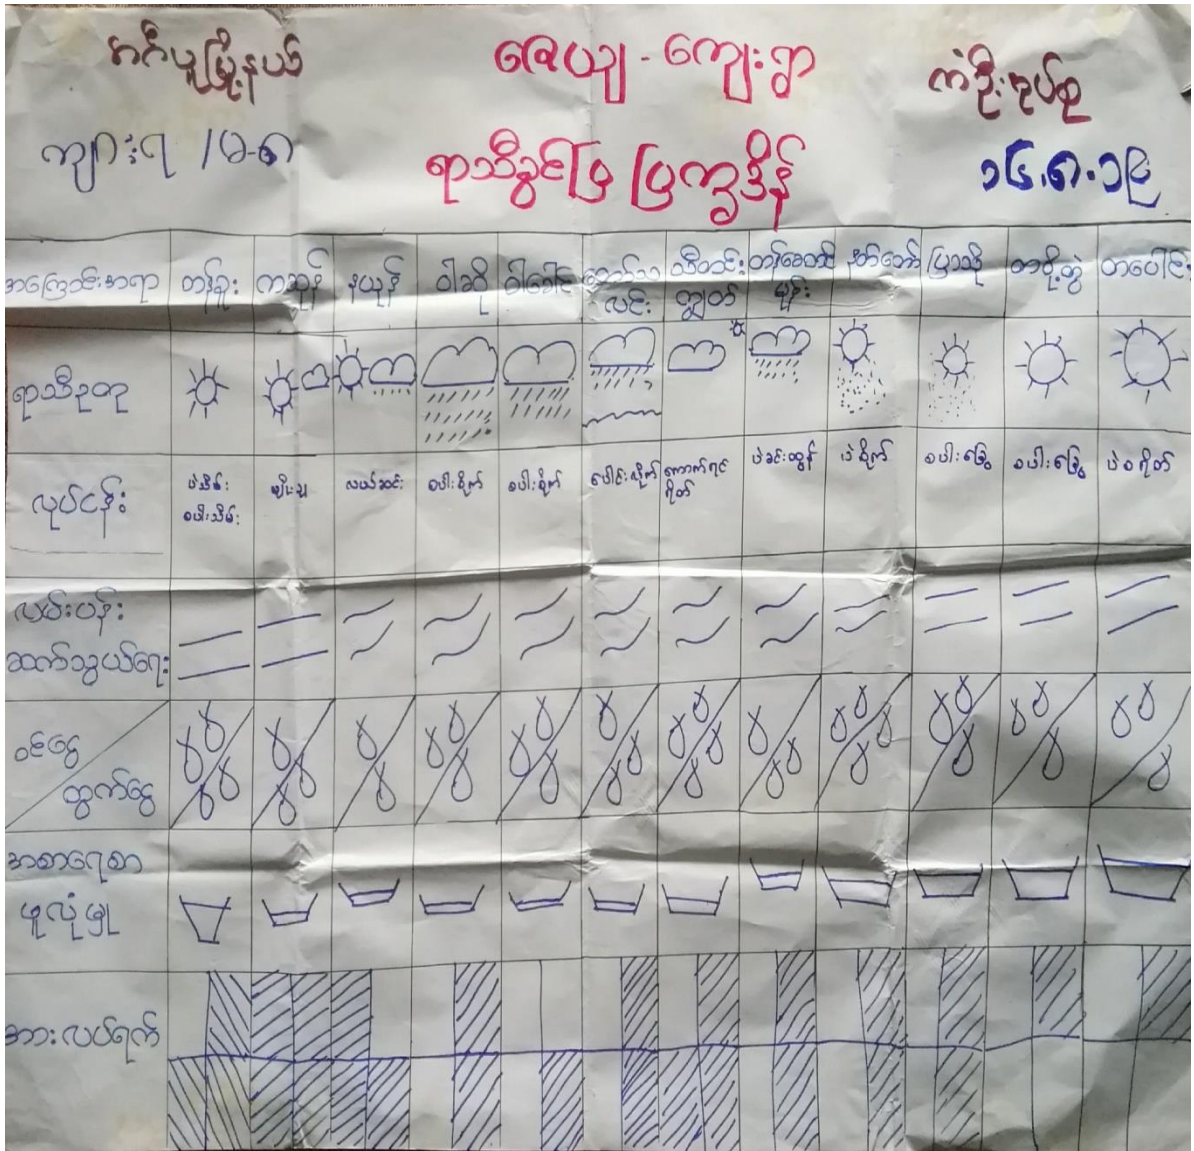 အင်္ဂပူမြို့နယ်
ဇေယျ - ကျေးရွာ
ကံဦးအုပ်စု
ကျား ၇ / မ-၈
ရာသီခွင်ပြ ပြက္ခဒိန်
၁၆.၈.၁၉
အကြောင်းအရာ တန်ခူး ကဆုန် နယုန် ဝါဆို ဝါခေါင် တော်သလင်း သီတင်းကျွတ် တန်ဆောင်မုန်း နတ်တော် ပြာသို တပို့တွဲ တပေါင်း
ရာသီဥတု
လုပ်ငန်း
ပဲသိမ်း စပါးသိမ်း
မျိုးချ
လယ်ဆင်း
စပါးစိုက်
စပါးစိုက်
ပေါင်းလိုက်
ကောက်ရင်ရိတ်
ပဲခင်းထွန်
ပဲစိုက်
စပါးခြွေ
စပါးခြွေ
ပဲစရိတ်
လမ်းပန်း
ဆက်သွယ်ရေး
ဝင်ငွေ
ထွက်ငွေ
အစာရေစာ
ဖူလုံမှု
အားလပ်ရက်